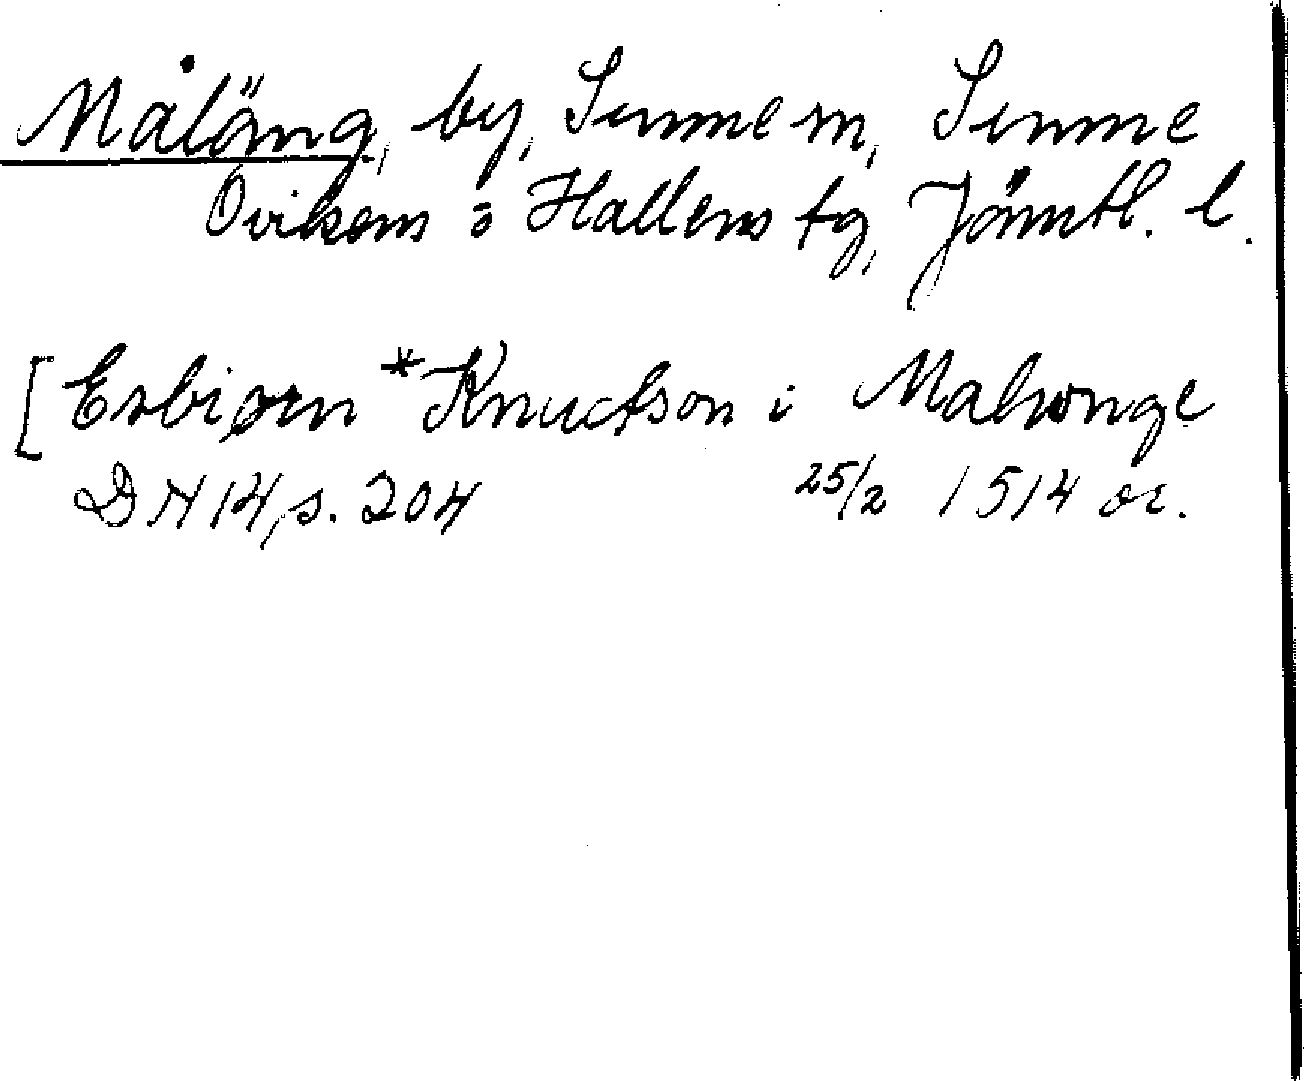 Måläng, by, Sunne sn, Sunne
Ovikens o Hallens tg, Jämtl. l.
[Esbiørn *Knudson i Malwnge
DN 14, s. 204 25/2 1514 or.